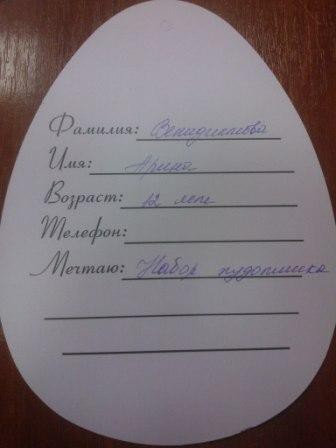 Фамилия: Венидиктова
Имя: Арина
Возраст: 12 лет
Телефон:
Мечтаю: Набор художника